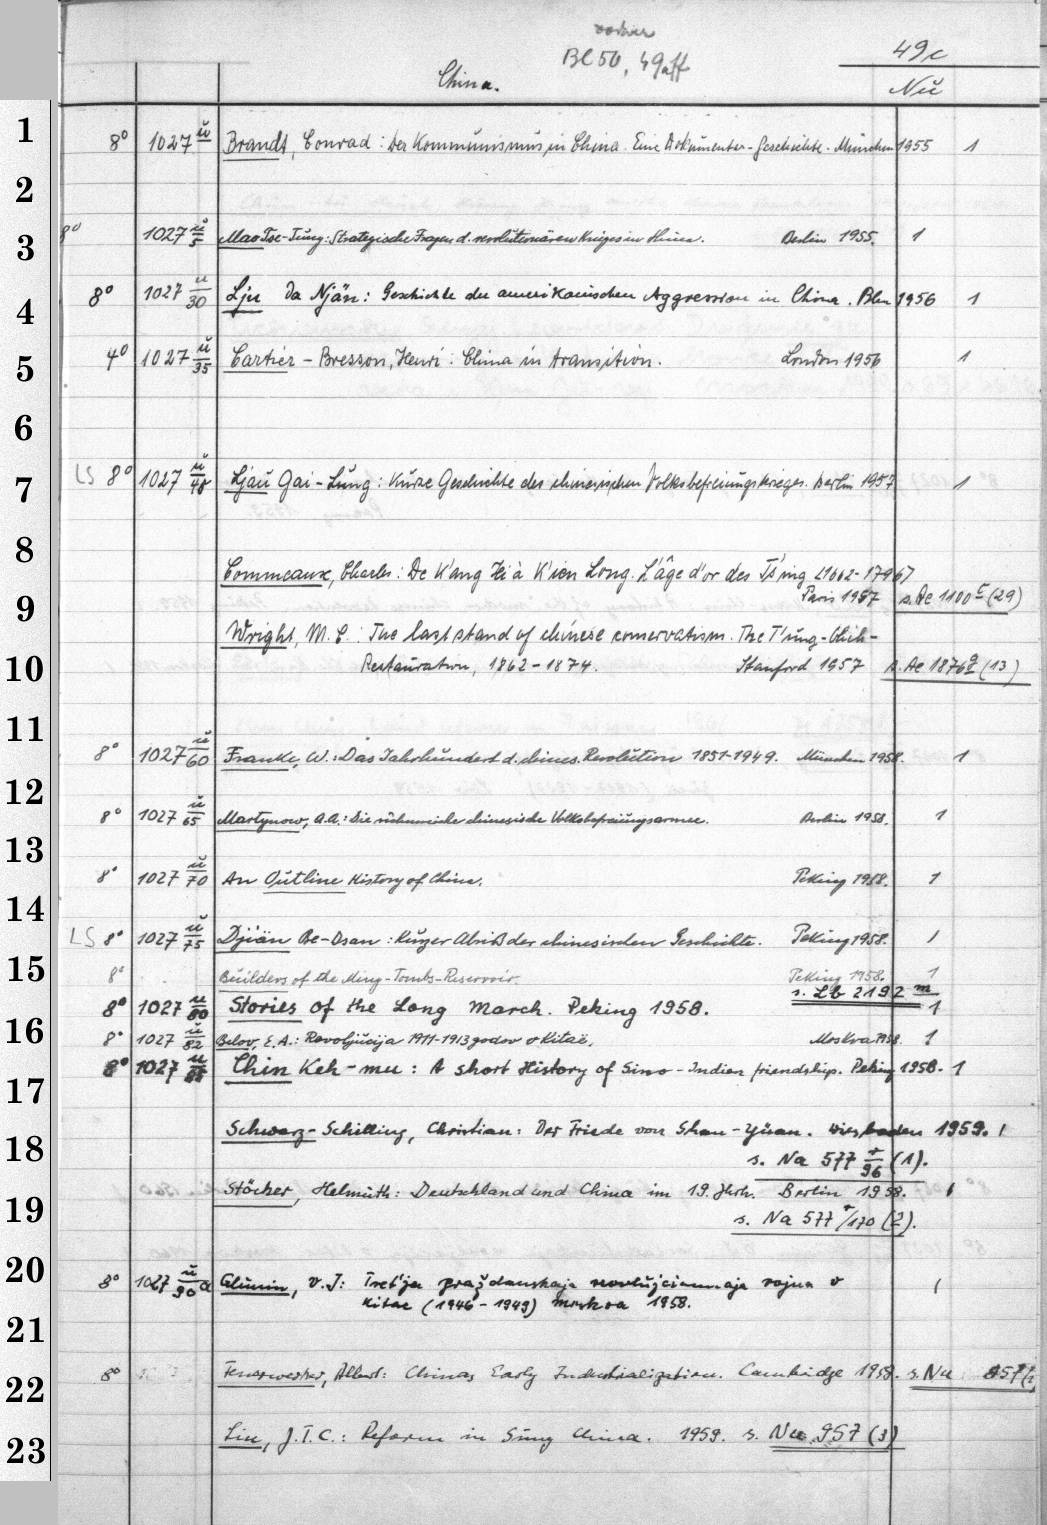 vorher
Bl 50, 49aff
49c
China.
Nu
1
8° 1027 ü Brandt, Conrad: Der Kommunismus in China. Eine Dokumentar-Geschichte. München 1955 1
2
8° 1027 ü/5 Mao Tse-Tung: Strategische Fragen d. revolutionären Krieges in China. Berlin 1955. 1
3
8° 1027 ü/30 Lju Da Njän: Geschichte der amerikanischen Aggression in China. Bln 1956 1
4
4° 1027 ü/35 Cartier-Bresson, Henri: China in transition. London 1956 1
5
6
LS 8° 1027 ü/40 Ljau Gai-Lung: Kurze Geschichte des chinesischen Volksbefreiungskrieges. Berlin 1957 1
7
8
Commeaux, Charles: De K'ang Hi à K'ien Long. L'âge d'or des Ts'ing (1662-1796)
Paris 1957 s. Ae 1100 (29)
9
Wright, M. C.: The last stand of chinese conservatism. The T'ung-Chih-
Restauration, 1862-1874. Stanford 1957 s. Ae 1876 (13)
10
11
8° 1027 ü/60 Franke, W.: Das Jahrhundert d. chines. Revolution 1851-1949. München 1958. 1
12
8° 1027 ü/65 Martynow, A.A.: Die ruhmreiche chinesische Volksbefreiungsarmee. Berlin 1958. 1
13
8° 1027 ü/70 An Outline History of China. Peking 1958. 1
14
LS 8° 1027 ü/75 Djiän Be-Dsan: Kurzer Abriß der chinesischen Geschichte. Peking 1958. 1
15
8° Builders of the Ming-Tombs-Reservoir. Peking 1958. 1
s. Lb 2192 m
8° 1027 ü/80 Stories of the Long March. Peking 1958. 1
16
8° 1027 ü/82 Belov, E.A.: Revoljucija 1911-1913 godov v Kitae. Moskva 1958. 1
8° 1027 ü/85 Chin Keh-mu: A short History of Sino-Indian friendship. Peking 1958. 1
17
Schwarz-Schilling, Christian: Der Friede von Shan-Yüan. Wiesbaden 1959. 1
18
s. Na 577 r/96 (1).
Stöcker, Helmuth: Deutschland und China im 19. Jhrh. Berlin 1958. 1
19
s. Na 577 r/170 (2).
20
8° 1027 ü/90 a Glunin, V.I: Tret'ja graždanskaja revoljucionnaja vojna v 1
Kitae (1946-1949) Moskva 1958.
21
8° Feuerwerker, Albert: Chinas Early Industrialization. Cambridge 1958. s. Nu 957
22
Liu, J.T.C.: Reform in Sung China. 1959. s. Nu 957 (3)
23